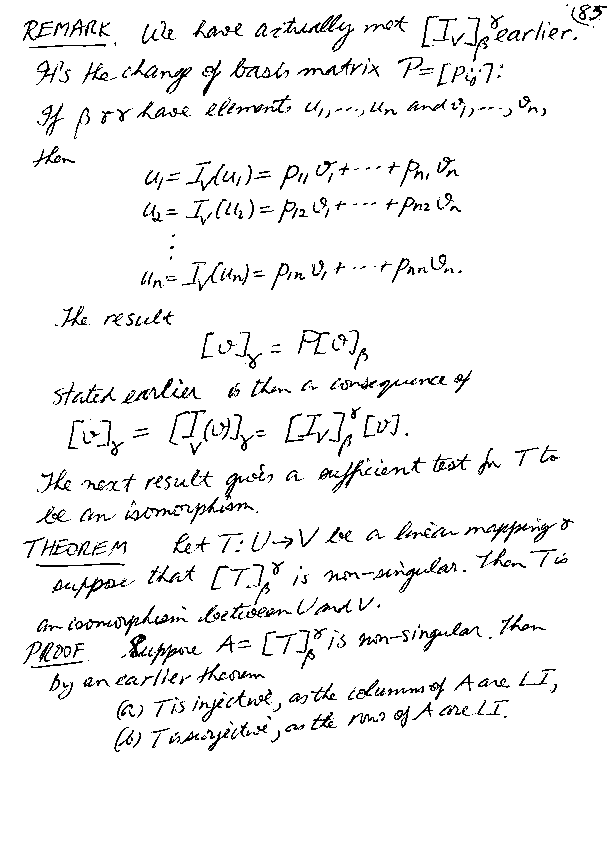 85
REMARK. We have actually met [I_V]_β^γ earlier.
It's the change of basis matrix P=[P_ij]:
If β & γ have elements u_1,...,u_n and v_1,...,v_n,
then
u_1 = I_V(u_1) = p_11 v_1 + ··· + p_n1 v_n
u_2 = I_V(u_2) = p_12 v_1 + ··· + p_n2 v_n
⋮
u_n = I_V(u_n) = p_1n v_1 + ··· + p_nn v_n.
The result
[v]_γ = P[v]_β
stated earlier is then a consequence of
[v]_γ = [I_V(v)]_γ = [I_V]_β^γ [v].
The next result gives a sufficient test for T to
be an isomorphism.
THEOREM Let T: U→V be a linear mapping &
suppose that [T]_β^γ is non-singular. Then T is
an isomorphism between U and V.
PROOF. Suppose A = [T]_β^γ is non-singular. Then
by an earlier theorem
(a) T is injective, as the columns of A are LI,
(b) T is surjective, as the rows of A are LI.